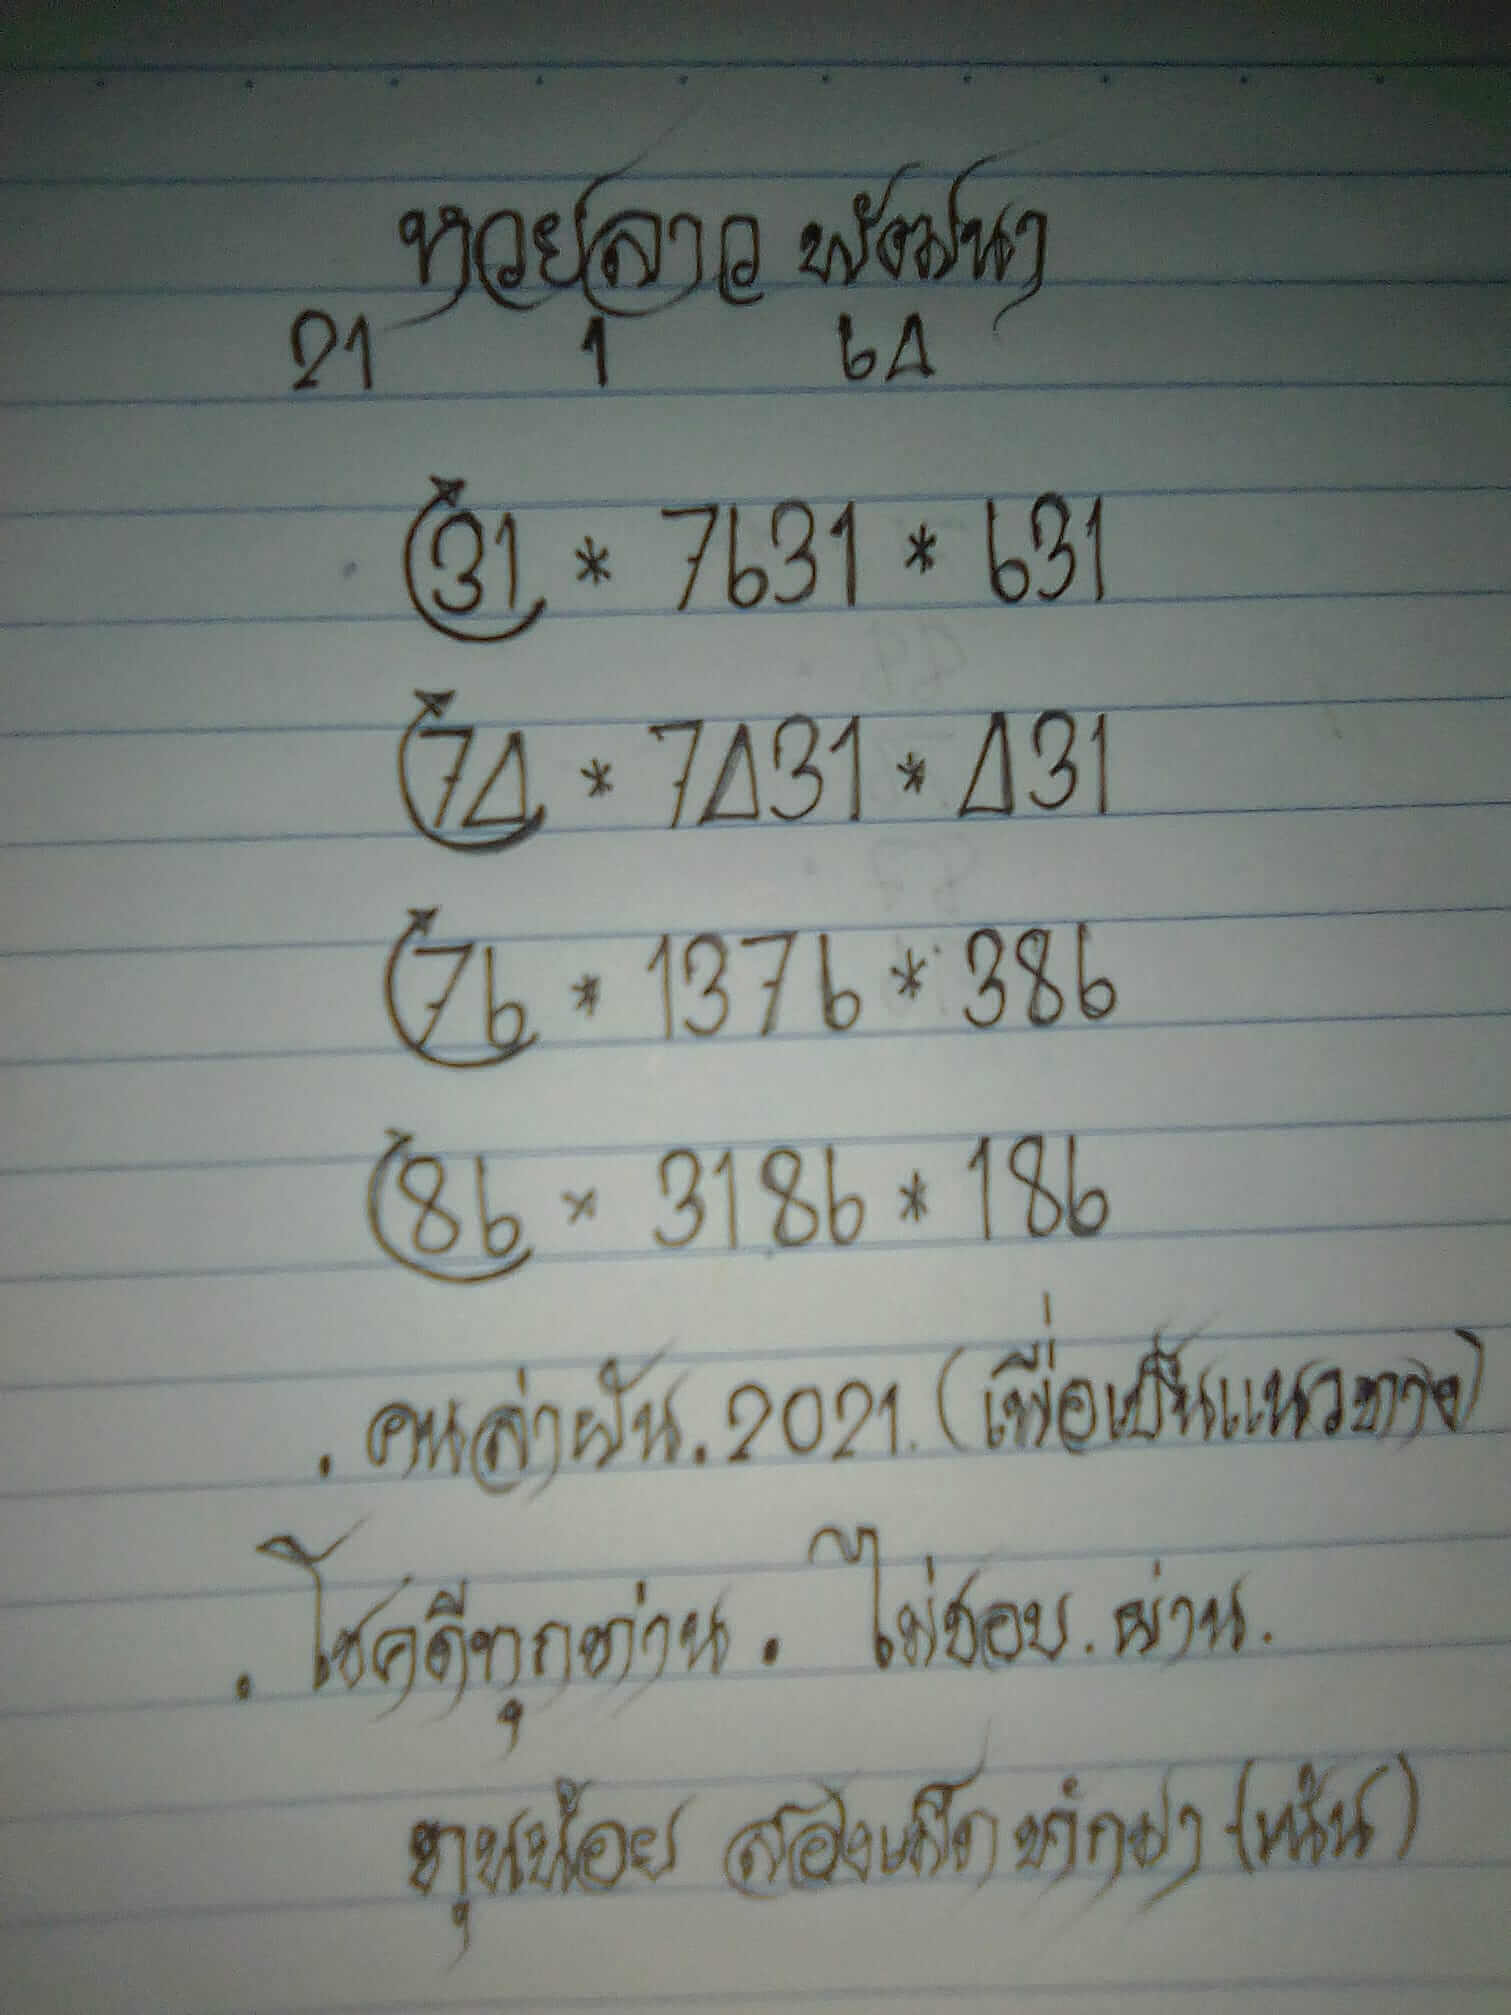 หวยลาว พัฒนา
21 1 64
31 * 7631 * 631
74 * 7431 * 431
76 * 1376 * 386
86 * 3186 * 186
. คนล่าฝัน. 2021. (เพื่อเป็นแนวทาง)
. โชคดีทุกท่าน . ไม่ชอบ. ผ่าน.
ทุนน้อย สอง (เน้น)